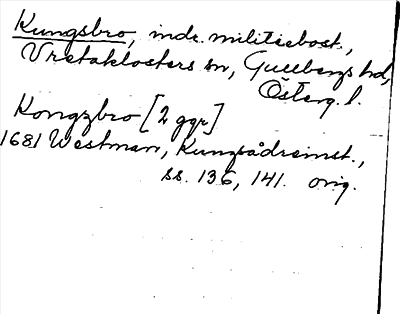 Kungsbro, indr. militiebost.,
Vretaklosters sn, Gullbergs hd,
Österg. l.
Kongzbro [2 ggr]
1681 Westman, Kungsådreinst.,
ss. 136, 141. orig.